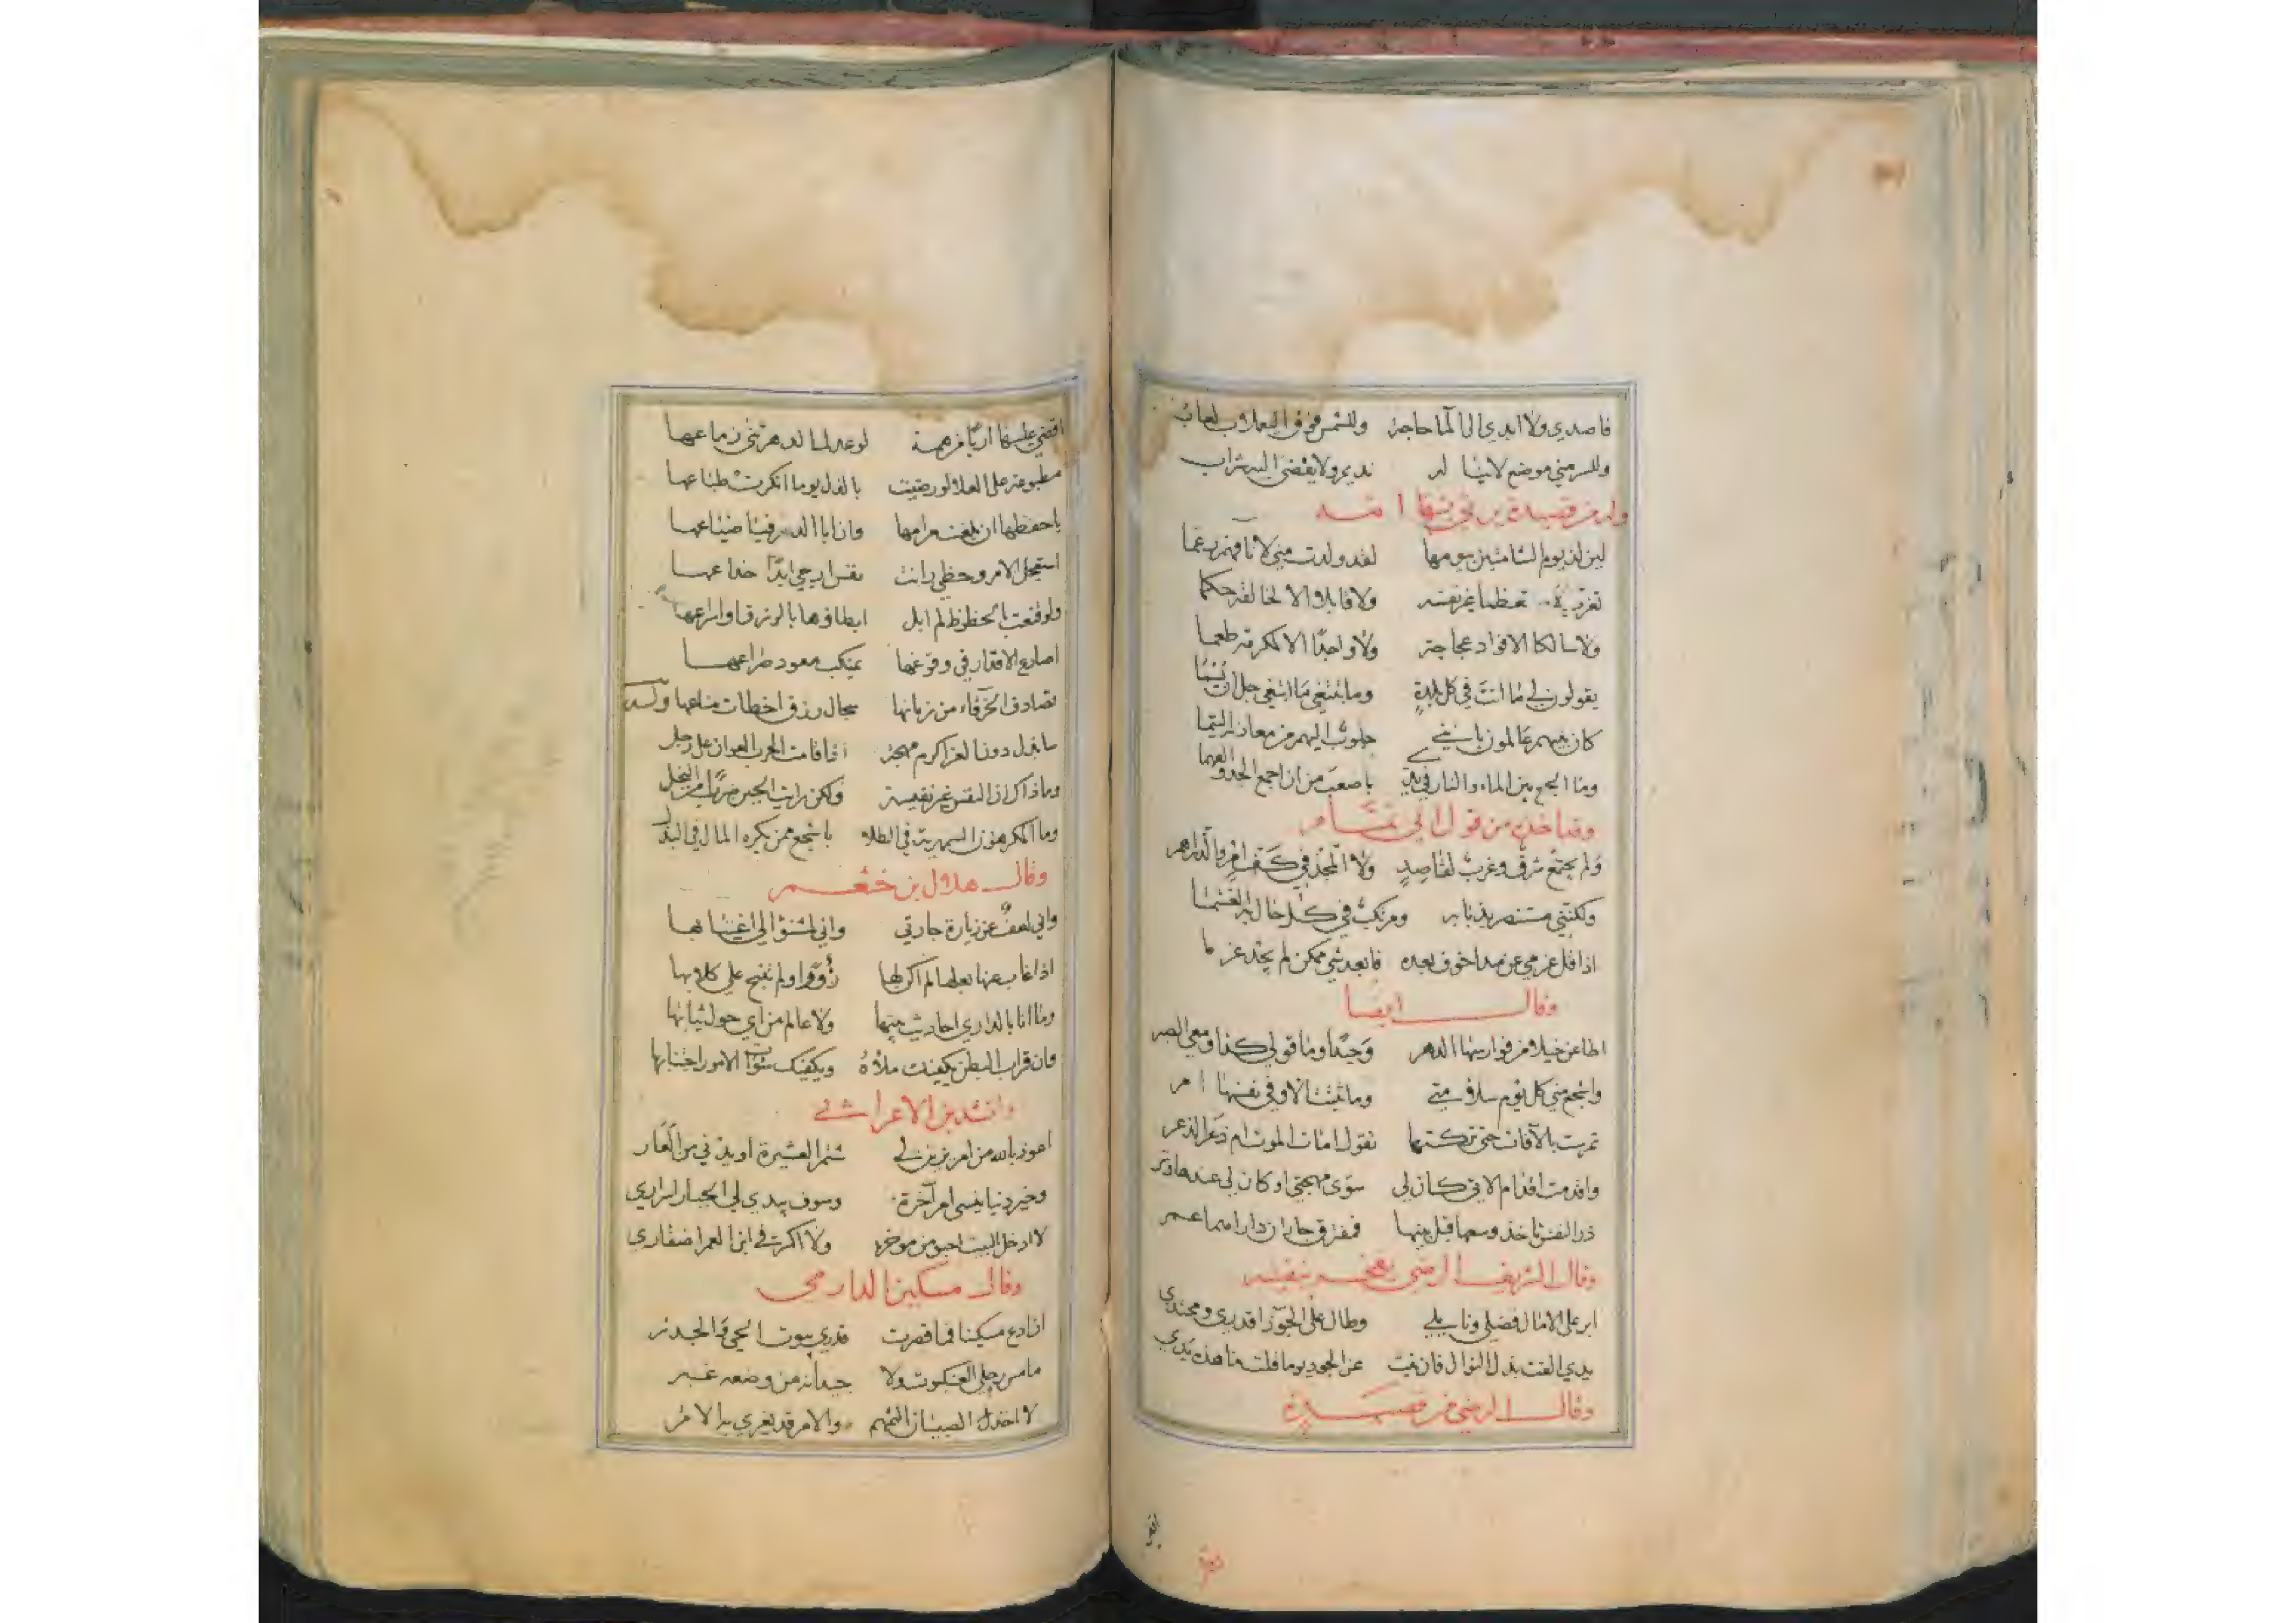 فاصدي ولا ابدي الى الماء حاجة وللشمس فوق اليعملات لعاب
وللسر مني موضع لا يناله نديم ولا يفضي اليه شراب
وله من قصيدة يرثي بها
لين لذ يوم الشامتين بيومها لقد ولدت مني لانافهم رغما
تغرب لا مستعظما غير نفسه ولا قابلا الا لخالقه حكما
ولا سالكا الا فواد عجاجة ولا واجدا الا لمكرمة طعما
يقولون لي ما انت في كل بلدة وما تبتغي ما ابتغي جل ان يسمى
كان بنيهم عالمون بانني جلوب اليهم من معادنه اليتما
وما الجمع بين الماء والنار في يدي باصعب من ان اجمع الجد والفهما
وقد اخذه من قول ابي تمام
ولم يجتمع شرق وغرب لقاصد ولا المجد في كف امرء والدراهم
ولكنني مستنصر بذبابه ومرتكب في كل حال به الغشما
اذا فل عزمي عن مدا خوف بعده فابعد شي ممكن لم يجد عزما
وقال ايضا
اطاعن خيلا من فوارسها الدهر وحيدا وما قولي كذا ومعي الصبر
واشجع مني كل يوم سلامتي وما ثبتت الا وفي نفسها امر
تمرست بالآفات حتى تركتها تقول امات الموت ام ذعر الذعر
واقدمت اقدام الاتي كان لي سوى مهجتي او كان لي عندها وتر
ذر النفس تاخذ وسعها قبل بينها فمفترق جاران دارهما عمر
وقال الشريف الرضي يفخر بنفسه
ابر على الامثال فضلي ونايلي وطال على الجوزا قدري ومحتدي
يدي الفت بذل النوال فان نبت عن الجود يوما قلت ما هذه يدي
وقال الرضي من قصيدة
اقضي عليها اربا من همة لو عدلها الدهر ثنى زماعها
مطبوعة على العلا لو رضيت بالذل يوما انكرت طباعها
يا حفظها ان بلغت مرامها وان ابا الدهر فيا ضياعها
استعجل الامر وحظي رابث نفس ارجي ابدا خداعها
ولو قنعت بالحظوظ لم ابل ابطاوها بالرزق او اسراعها
اصارع الاقدار في وقوعها بمنكب معود صراعها
تصادف الخرقاء من زمانها سجال رزق اخطات صناعها وله
سابذل دون العز اكرم مهجة اذا قامت الحرب العوان على رجل
وما ذاك ان النفس غير نفيسة ولكن رايت الجبن ضربا من البخل
وما المكرهون السمهرية في الطلا باشجع ممن يكره المال في البذل
وقال هلال بن خثعم
واني لعف عن زيارة جارتي واني لمشنؤ الي اغتيابها
اذا غاب عنها بعلها لم اكن لها زؤورا ولم تنبح علي كلابها
وما انا بالداري احاديث بيتها ولا عالم من اي حول ثيابها
وان قراب البطن يكفيك ملأه ويكفيك سوآت الامور اجتنابها
وانشد ابن الاعرابي
اعوذ بالله من امر يزين لي شتم العشيرة او يدني من العار
وخير دنيا ينسي امر آخرة وسوف يبدي لي الجبار اسراري
لا ادخل البيت احبو من موخره ولا اكسر في ابن العم اظفاري
وقال مسكين الدارمي
ان ادع مسكينا فما قصرت قدري بيوت الحي والجدر
ما مس رحلي العنكبوت ولا جدياته من وضعه غبر
لا اخذل الصبيان الثمهم والامر قد يغري به الامر